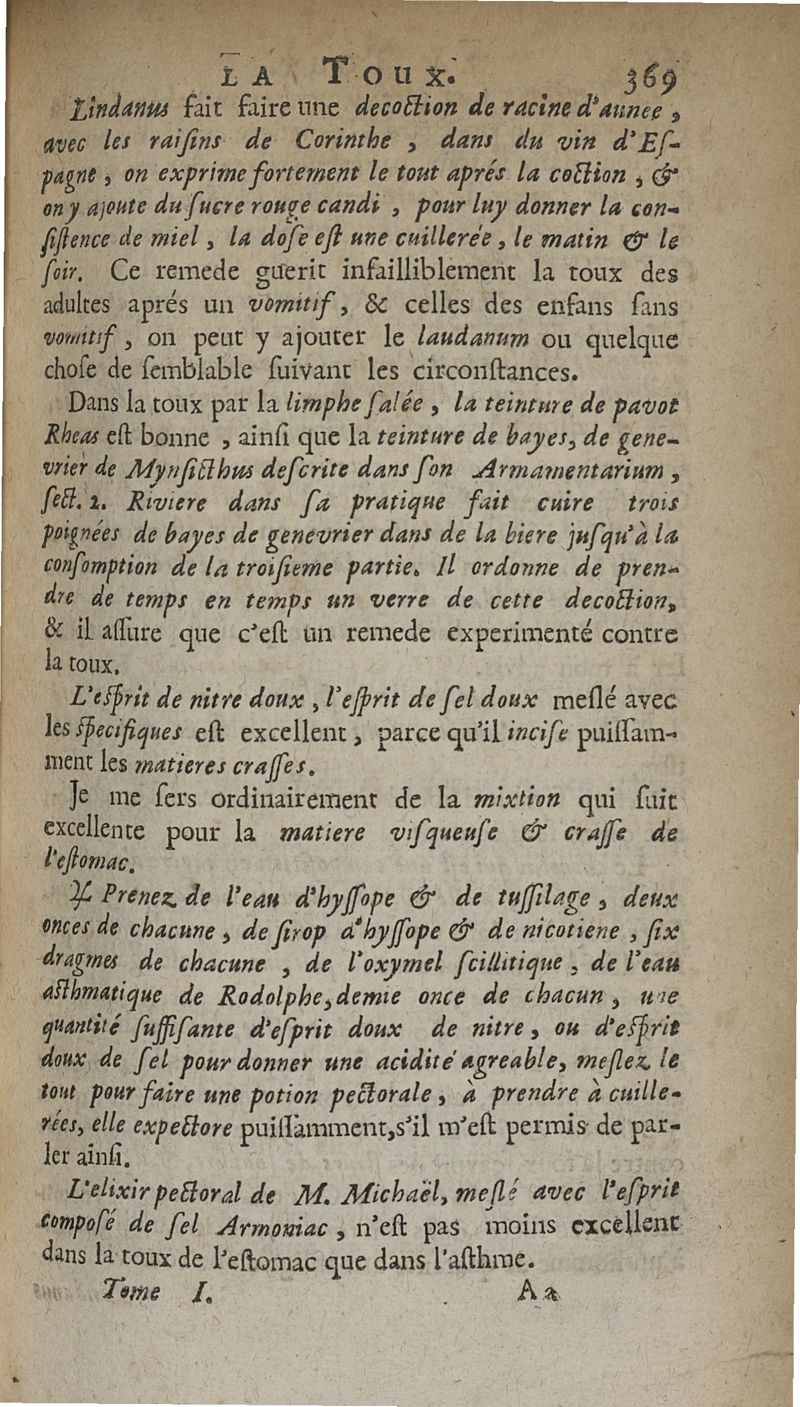 LA TOUX. 369
Lindanus fait faire une decoction de racine d'aunee,
avec les raiſins de Corinthe, dans du vin d'Eſ-
pagne, on exprime fortement le tout aprés la coction, &
on y ajoute du ſucre rouge candi, pour luy donner la con-
ſiſtence de miel, la doſe eſt une cuillerée, le matin & le
ſoir. Ce remede guerit infailliblement la toux des
adultes aprés un vomitif, & celles des enfans ſans
vomitif, on peut y ajouter le laudanum ou quelque
choſe de ſemblable ſuivant les circonſtances.
Dans la toux par la limphe ſalée, la teinture de pavot
Rheas eſt bonne, ainſi que la teinture de bayes, de gene-
vrier de Mynſicthus deſcrite dans ſon Armamentarium,
ſect. 2. Riviere dans ſa pratique fait cuire trois
poignées de bayes de genevrier dans de la biere juſqu'à la
conſomption de la troiſieme partie. Il ordonne de pren-
dre de temps en temps un verre de cette decoction,
& il aſſure que c'eſt un remede experimenté contre
la toux.
L'eſprit de nitre doux, l'eſprit de ſel doux meſlé avec
les ſpecifiques eſt excellent, parce qu'il inciſe puiſſam-
ment les matieres craſſes.
Je me ſers ordinairement de la mixtion qui ſuit
excellente pour la matiere viſqueuſe & craſſe de
l'eſtomac.
♃ Prenez de l'eau d'hyſſope & de tuſſilage, deux
onces de chacune, de ſirop d'hyſſope & de nicotiene, ſix
dragmes de chacune, de l'oxymel ſcillitique, de l'eau
aſthmatique de Rodolphe, demie once de chacun, une
quantité ſuffiſante d'eſprit doux de nitre, ou d'eſprit
doux de ſel pour donner une acidité agreable, meſlez le
tout pour faire une potion pectorale, à prendre à cuille-
rées, elle expectore puiſſamment, s'il m'eſt permis de par-
ler ainſi.
L'elixir pectoral de M. Michaël, meſlé avec l'eſprit
compoſé de ſel Armoniac, n'eſt pas moins excellent
dans la toux de l'eſtomac que dans l'aſthme.
Tome I. Aa